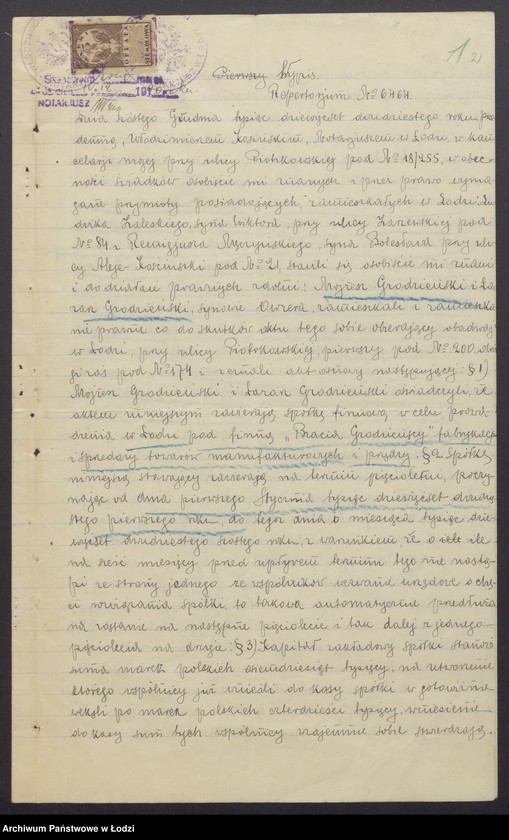 1
2)
OPŁATA STEMPLOWA
NOTARJUSZ
Pierwszy Wypis.
Repertorjum № 6464.
Dnia szóstego Grudnia tysiąc dziewięćset dwudziestego roku, przede
demną, Włodzimierzem Kosińskim, Notarjuszem w Łodzi, w kan-
celarji mojej przy ulicy Piotrkowskiej pod № 18/255, w obec-
ności świadków osobiście mi znanych i przez prawo wyma-
gane przymioty posiadających zamieszkałych w Łodzi: Lu-
dwika Zaleskiego, syna Wiktora, przy ulicy pod
№ 84 i Remigjusza Myszyńskiego, syna Bolesława przy uli-
cy Aleje Kościuszki pod № 21, stawili się osobiście mi znani
i do działań prawnych zdolni: Mojżesz Grodzieński i Ła-
zarz Grodzieński, synowie zamieszkali i zamieszka-
nie prawne co do skutków aktu tego sobie obierający obadwaj
w Łodzi, przy ulicy Piotrkowskiej, pierwszy pod № 200, dru-
gi zaś pod № 174 i zeznali akt osnowy następującej: § 1)
Mojżesz Grodzieński i Łazarz Grodzieński oświadczyli, że
aktem niniejszym zawierają spółkę firmową w celu prowa-
dzenia w Łodzi pod firmą „Bracia Grodzieńscy" fabrykacji
i sprzedaży towarów manufakturowych i przędzy. § 2. Spółkę
niniejszą stawający zawierają na termin pięcioletni, poczy-
nając od dnia pierwszego Stycznia tysiąc dziewięćset dwudzie-
stego pierwszego roku, do tegoż dnia i miesiąca tysiąc dzie-
więćset dwudziestego szóstego roku, z warunkiem, że o ile
na sześć miesięcy przed upływem terminu tego nie nastą-
pi ze strony jednego ze wspólników wezwanie urzędowe o chę-
ci rozwiązania spółki, to takowa automatycznie przedłużo-
ną zostanie na następne pięciolecie i tak dalej z jednego
pięciolecia na drugie. § 3) Kapitał zakładowy spółki stanowi
suma marek polskich osiemdziesiąt tysięcy, na utworzenie
którego wspólnicy już wnieśli do kasy spółki w gotowiźnie
po marek polskich czterdzieści tysięcy, wniesienie
do kasy sum tych wspólnicy wzajemnie sobie stwierdzają.
Archiwum Państwowe w Łodzi